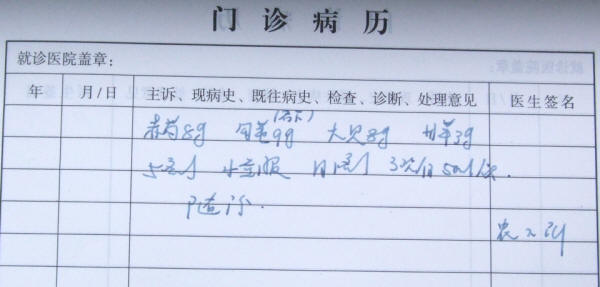 门诊病历
就诊医院盖章：
年 月/日 主诉、现病史、既往病史、检查、诊断、处理意见 医生签名
赤芍8g 9g 大贝8g 甘草3g
5剂 水煎服 日1剂 3次/日 50ml/次.
随诊.